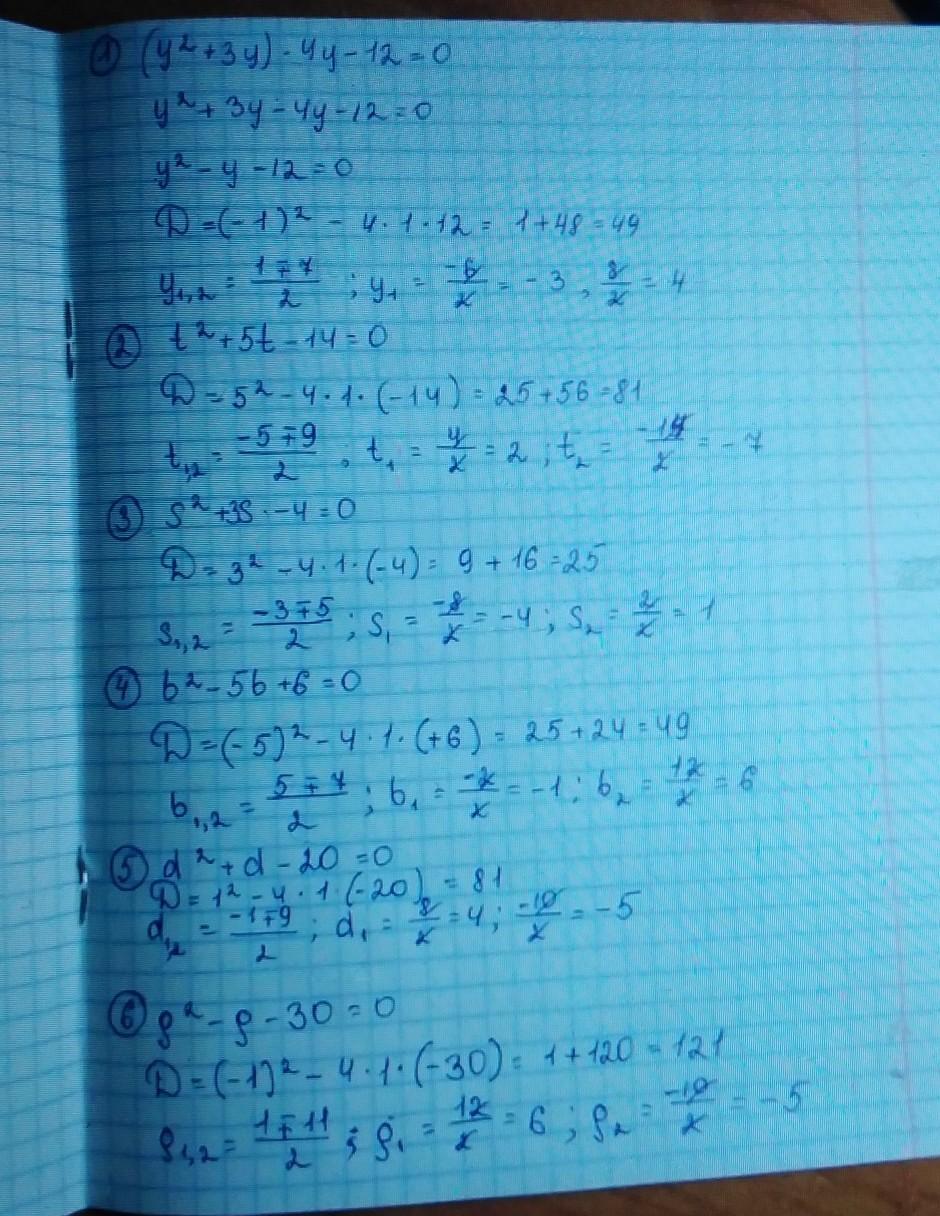 ① (y²+3y) - 4y - 12 = 0
y² + 3y - 4y - 12 = 0
y² - y - 12 = 0
D = (-1)² - 4·1·12 = 1+48 = 49
y₁,₂ = (1∓7)/2 ; y₁ = -6/2 = -3 , 8/2 = 4
② t² + 5t - 14 = 0
D = 5² - 4·1·(-14) = 25+56 = 81
t₁,₂ = (-5∓9)/2 , t₁ = 4/2 = 2 ; t₂ = -14/2 = -7
③ s² + 3s · -4 = 0
D = 3² - 4·1·(-4) = 9 + 16 = 25
s₁,₂ = (-3∓5)/2 ; s₁ = -8/2 = -4 ; s₂ = 2/2 = 1
④ b² - 5b + 6 = 0
D = (-5)² - 4·1·(+6) = 25 + 24 = 49
b₁,₂ = (5∓7)/2 ; b₁ = -2/2 = -1 ; b₂ = 12/2 = 6
⑤ d² + d - 20 = 0
D = 1² - 4·1·(-20) = 81
d₁,₂ = (-1∓9)/2 ; d₁ = 8/2 = 4 ; -10/2 = -5
⑥ ρ² - ρ - 30 = 0
D = (-1)² - 4·1·(-30) = 1+120 = 121
ρ₁,₂ = (1∓11)/2 ; ρ₁ = 12/2 = 6 ; ρ₂ = -10/2 = -5